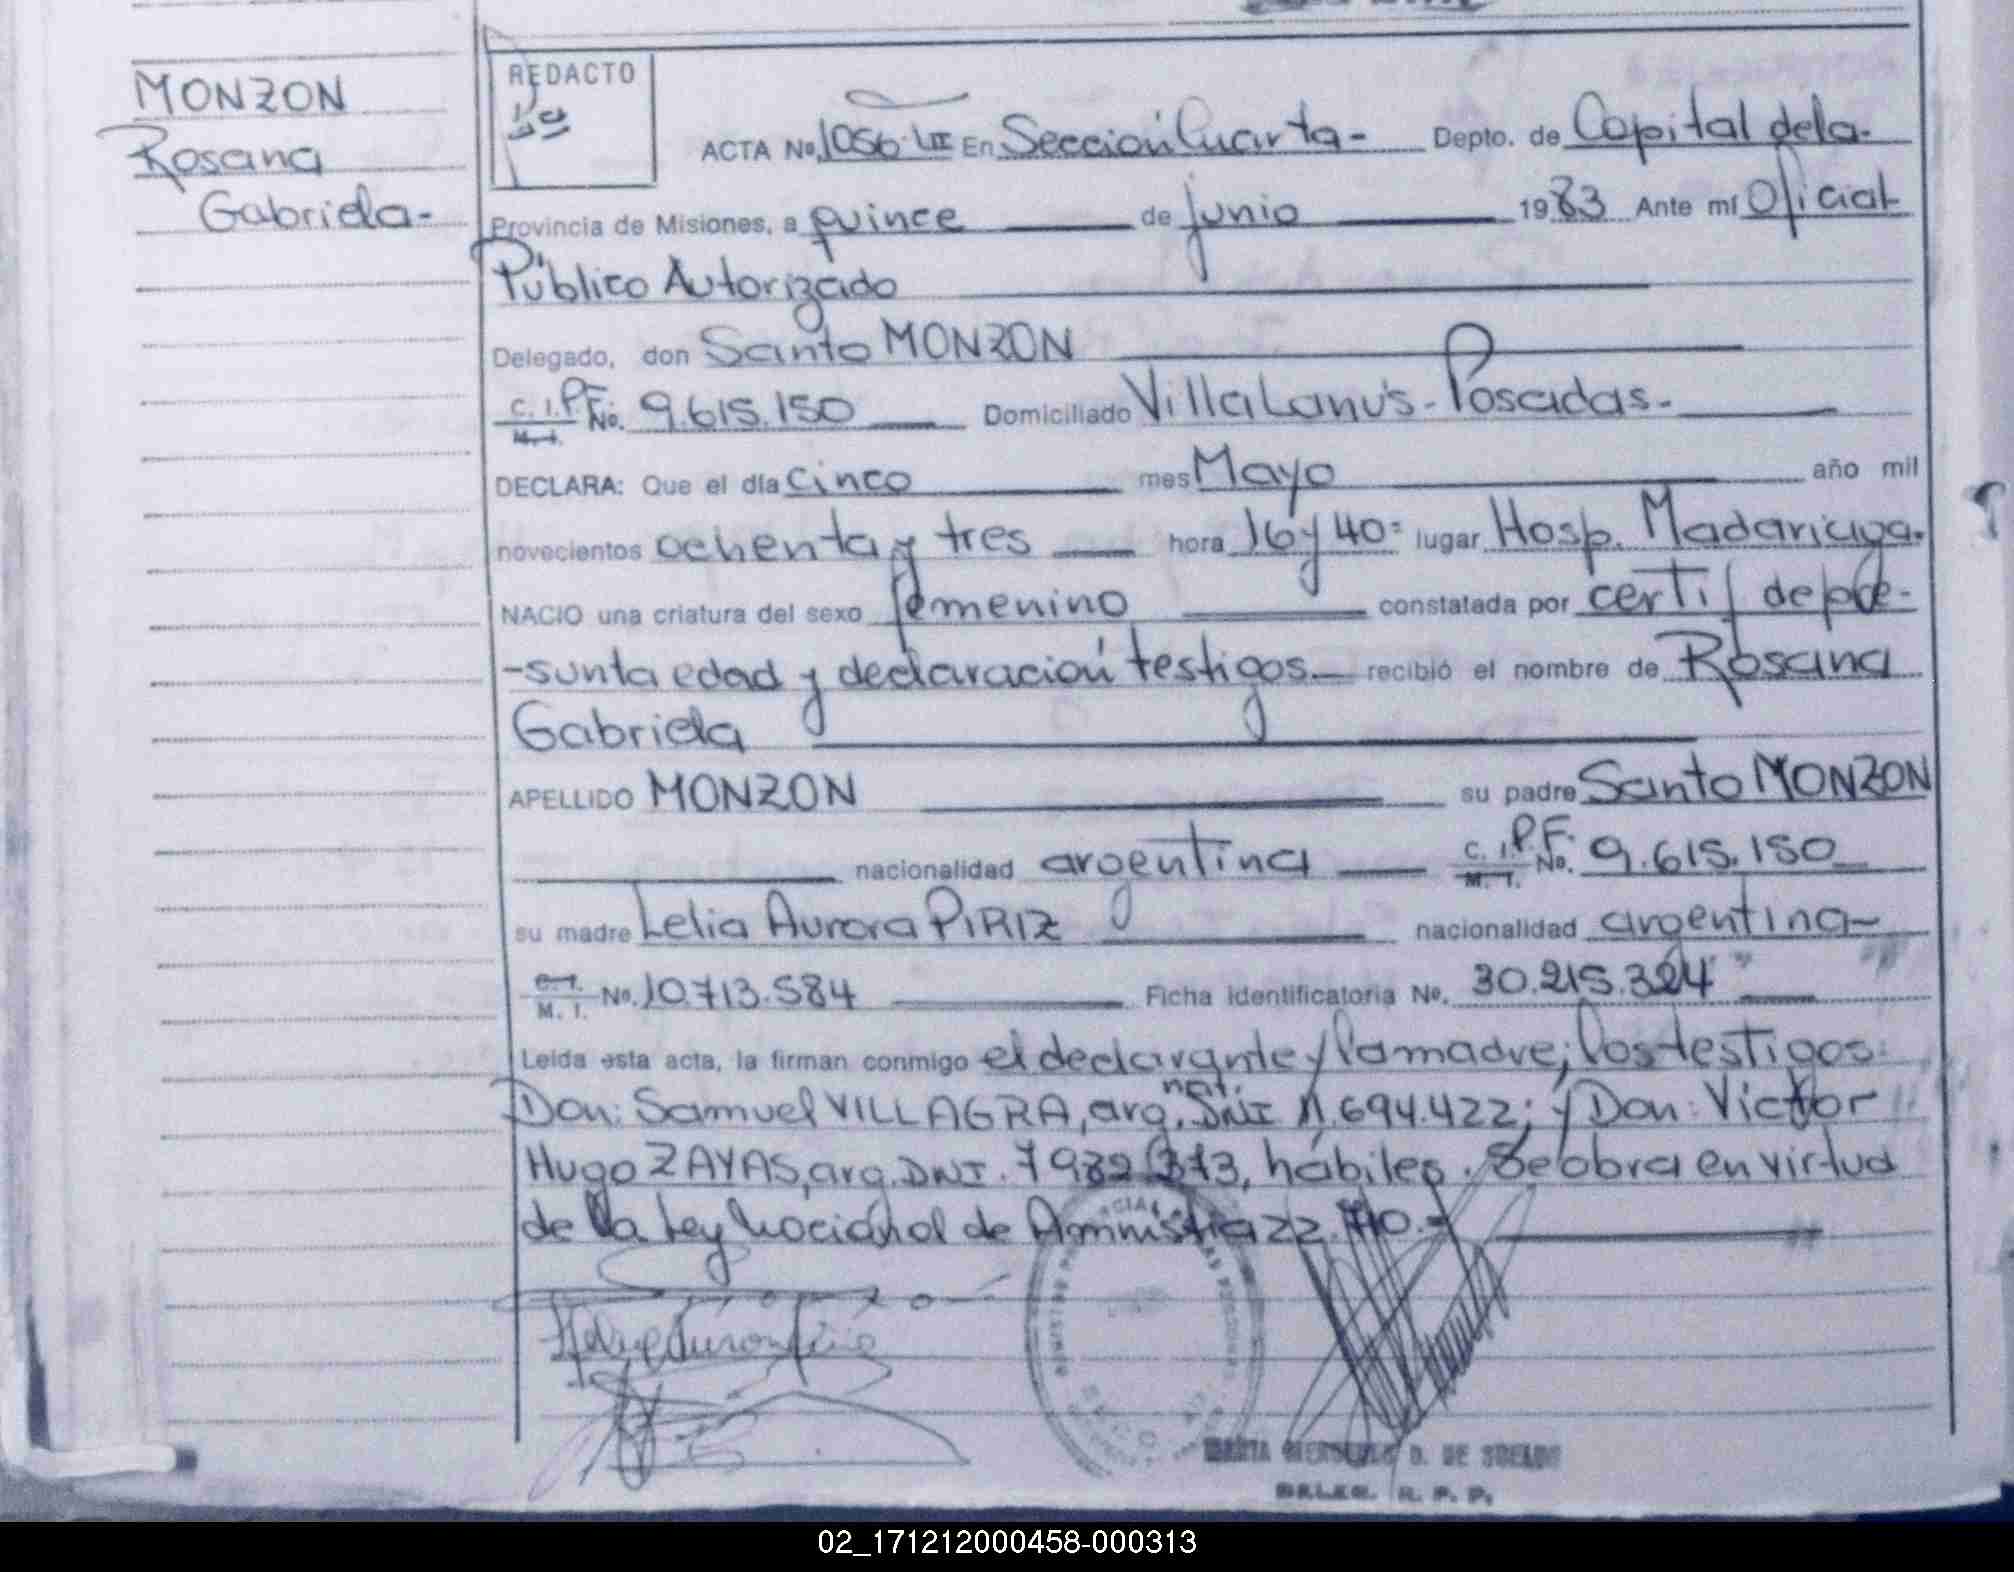 MONZON
Rosana
Gabriela-
REDACTO
ACTA No. 1056. LII En Sección Cuarta- Depto. de Capital de la-
Provincia de Misiones, a quince de junio 1983 Ante mí Oficial
Público Autorizado
Delegado, don Santo MONZON
C. I. P.F. No. 9.615.150 Domiciliado Villa Lanús - Posadas.-
M. I.
DECLARA: Que el día cinco mes Mayo año mil
novecientos ochenta y tres hora 16 y 40= lugar Hosp. Madariaga.
NACIO una criatura del sexo femenino constatada por certif de pre-
-sunta edad y declaración testigos- recibió el nombre de Rosana
Gabriela
APELLIDO MONZON su padre Santo MONZON
nacionalidad argentina C. I. P.F. No. 9.615.150
M. I.
su madre Lelia Aurora PIRIZ nacionalidad argentina-
C. I. M. I. No. 10.713.584 Ficha identificatoria No. 30.215.324
Leída esta acta, la firman conmigo el declarante y la madre; los testigos:
nat.
Don: Samuel VILLAGRA, arg. DNI 11.694.422; y Don: Victor
Hugo ZAYAS, arg. DNI. 7982373, hábiles. Se obra en virtud
de la Ley Nacional de Amnistia 22.710.-
D. DE
DELEG. R. P. P.
02_171212000458-000313